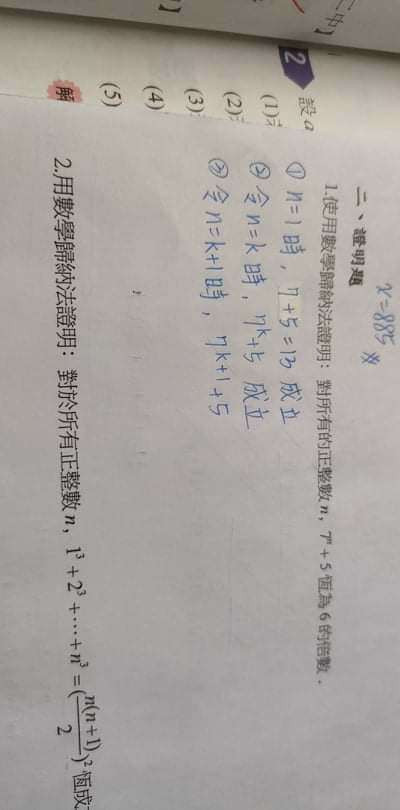 二中】
】
2
設 a
(1)
(2)
(3)
(4)
(5)
解
x=885 ※
二、證明題
1.使用數學歸納法證明：對所有的正整數 n，7ⁿ + 5 恆為 6 的倍數．
① n=1 時，7+5=13 成立
② 令 n=k 時，7ᵏ+5 成立
③ 令 n=k+1 時，7ᵏ⁺¹+5
2.用數學歸納法證明：對於所有正整數 n，1³ + 2³ + ⋯ + n³ = (n(n+1)/2)² 恆成